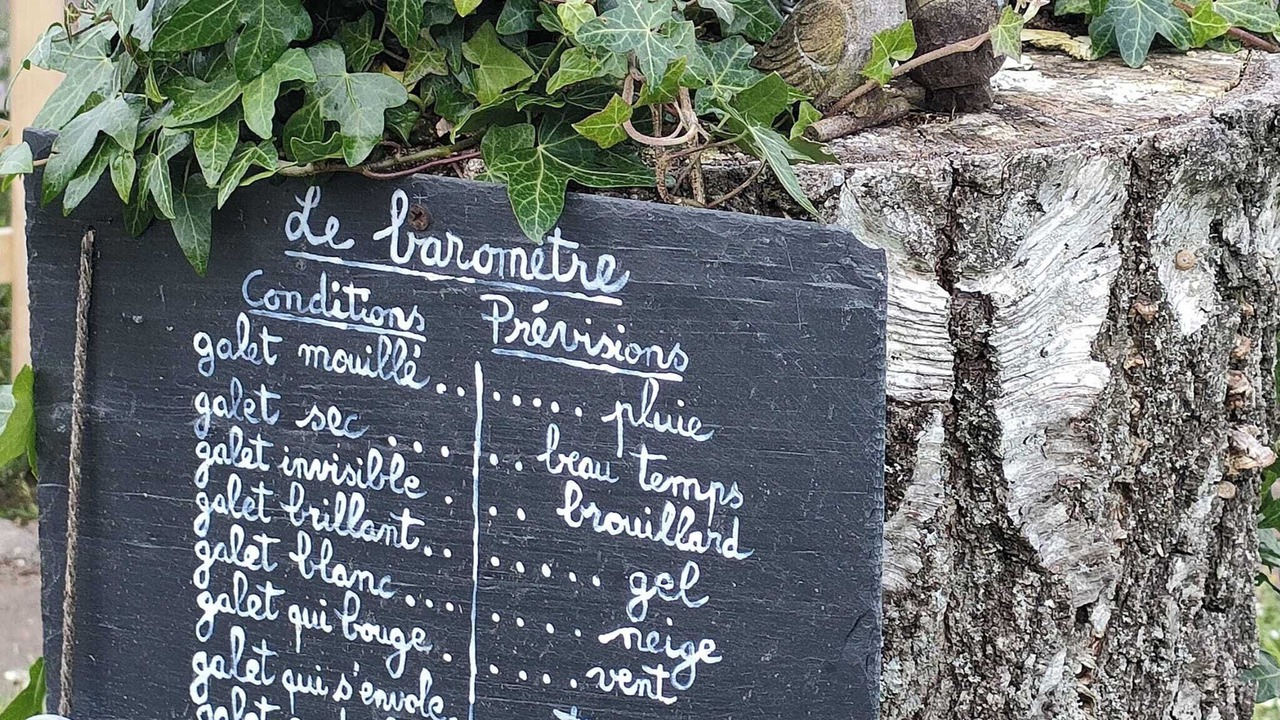 Le baromètre
Conditions Prévisions
galet mouillé ....... pluie
galet sec ...... beau temps
galet invisible ... brouillard
galet brillant ....... gel
galet blanc ........ neige
galet qui bouge ..... vent
galet qui s'envole
galet